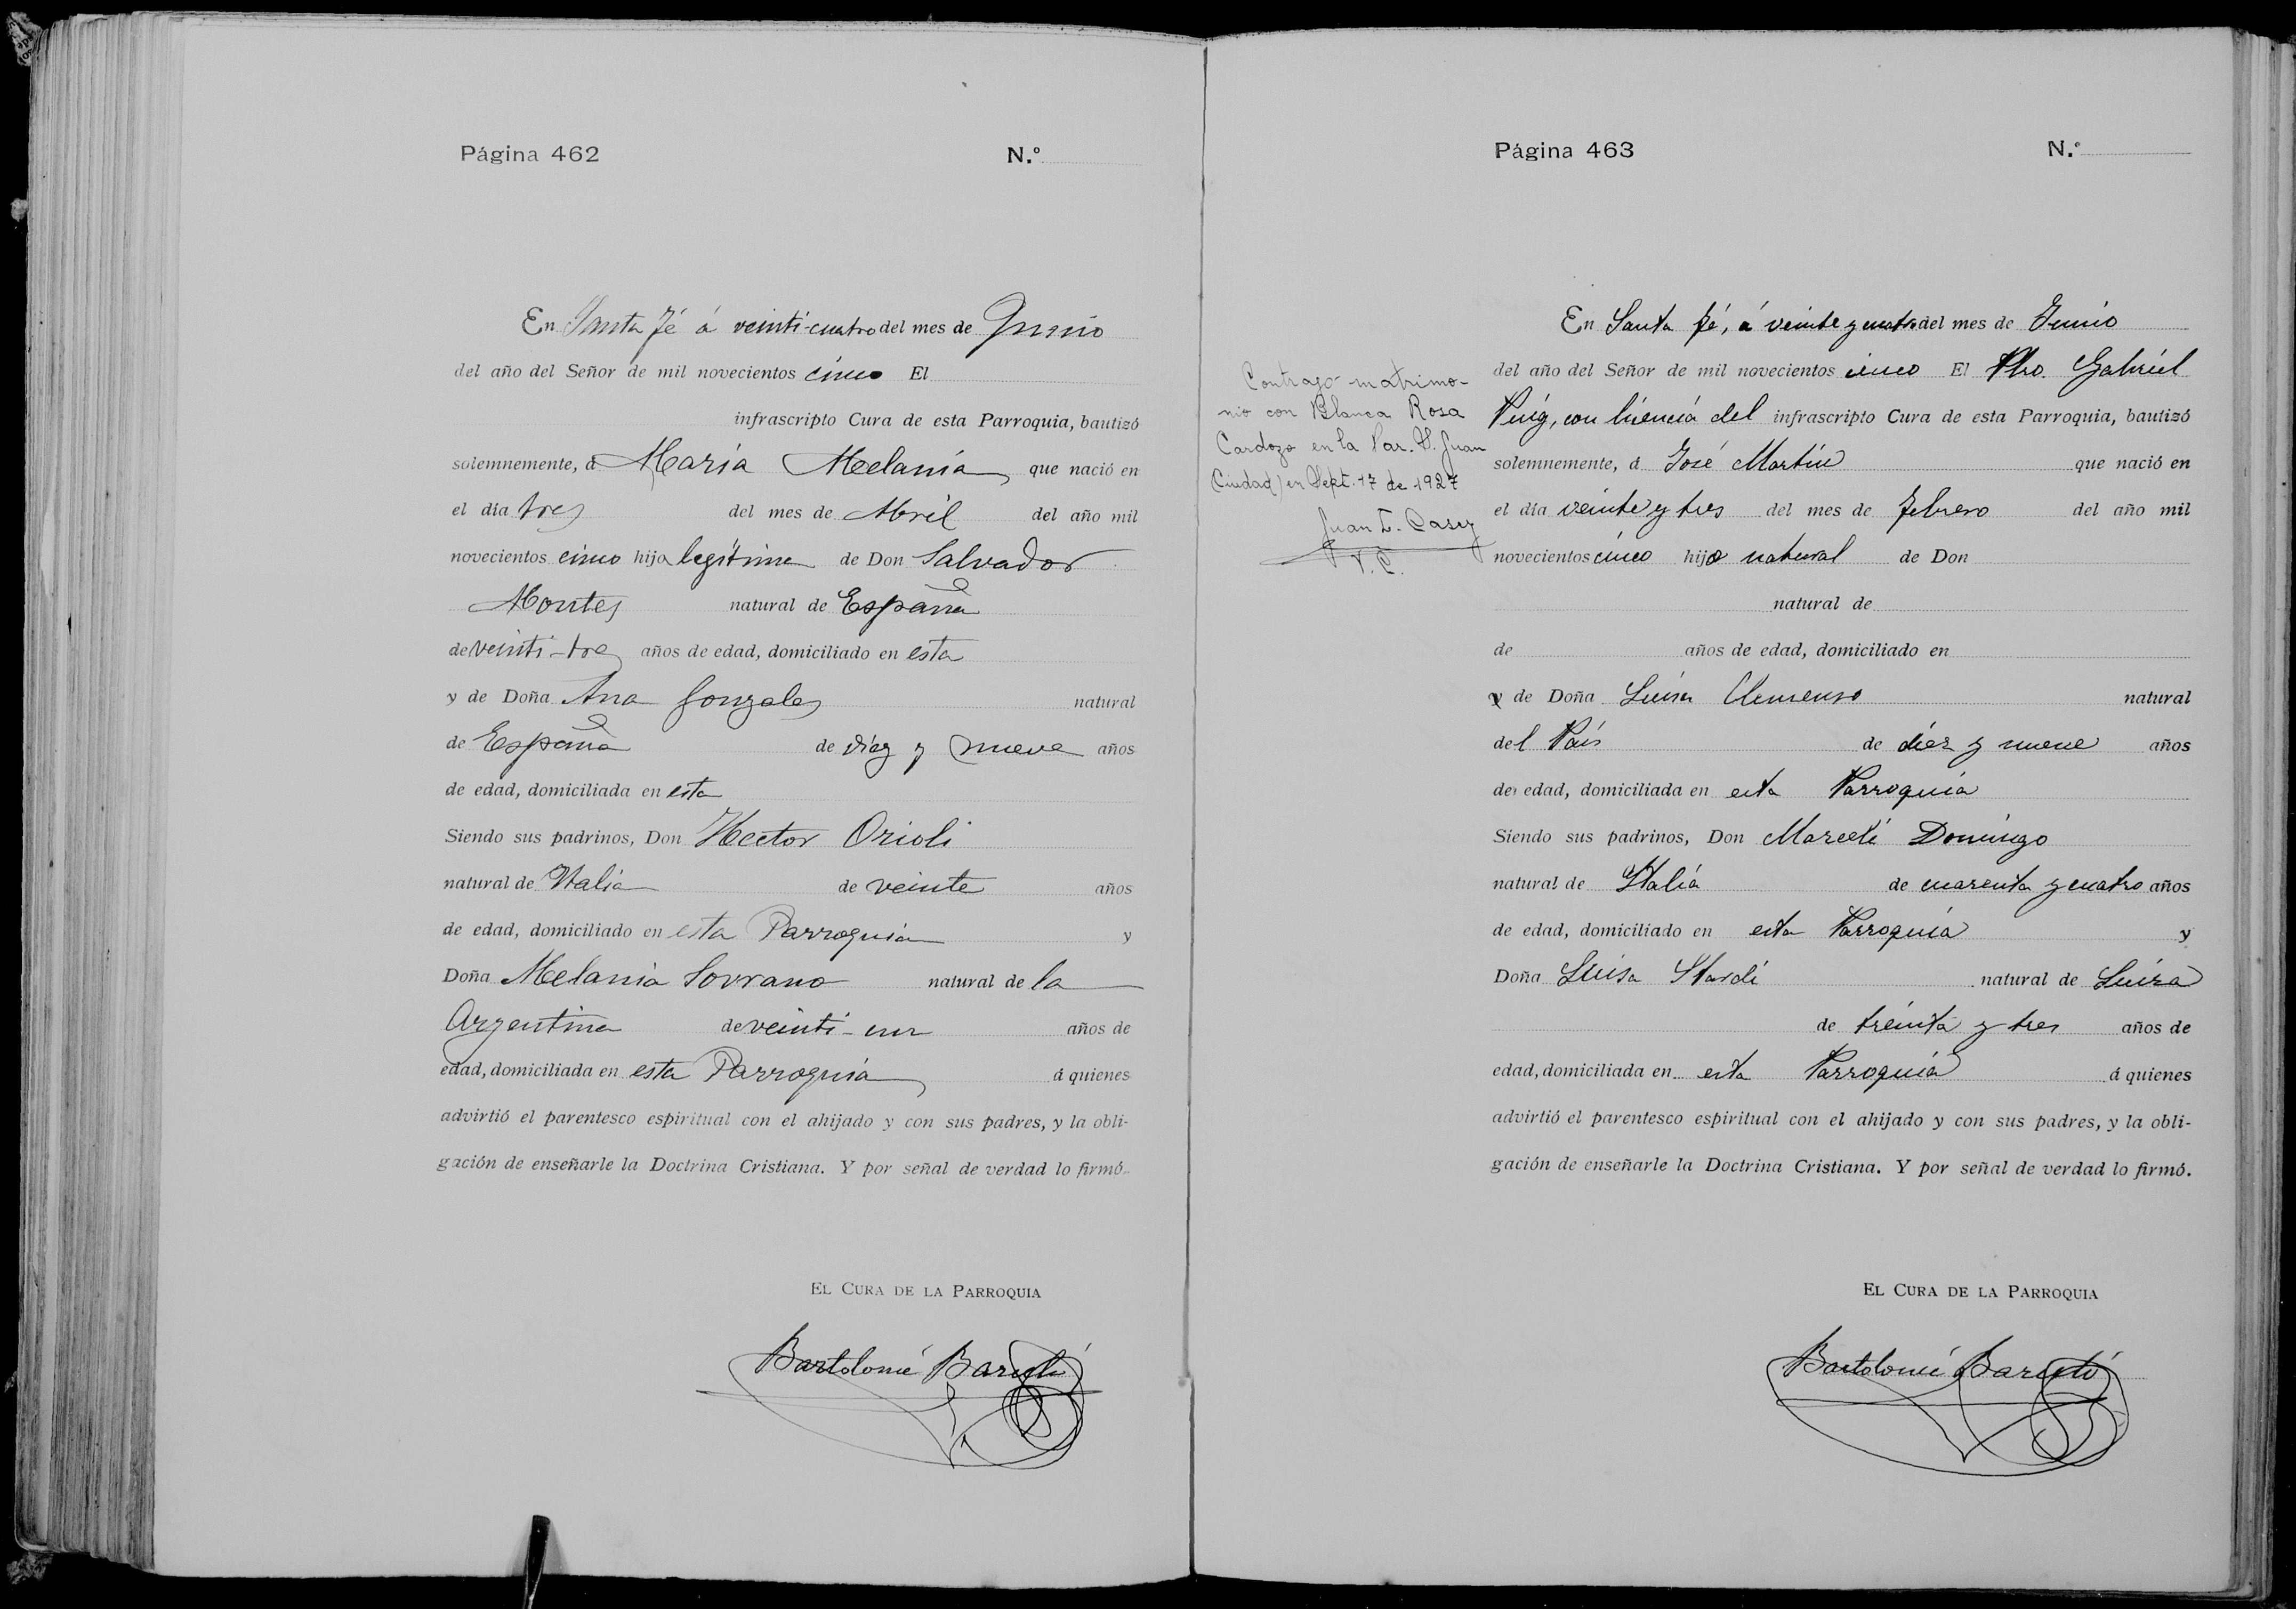 Página 462 N.º
En Santa Fé á veinti-cuatro del mes de Junio
del año del Señor de mil novecientos cinco El
infrascripto Cura de esta Parroquia, bautizó
solemnemente, á María Melania que nació en
el día tres del mes de Abril del año mil
novecientos cinco hija legítima de Don Salvador
Montes natural de España
de veinti-tres años de edad, domiciliado en esta
y de Doña Ana Gonzales natural
de España de diez y nueve años
de edad, domiciliada en esta
Siendo sus padrinos, Don Hector Orioli
natural de Italia de veinte años
de edad, domiciliado en esta Parroquia y
Doña Melania Sorrano natural de la
Argentina de veinti-un años de
edad, domiciliada en esta Parroquia á quienes
advirtió el parentesco espiritual con el ahijado y con sus padres, y la obli-
gación de enseñarle la Doctrina Cristiana. Y por señal de verdad lo firmó.
EL CURA DE LA PARROQUIA
Bartolomé Barceló
Página 463 N.º
En Santa Fé, á veinte y cuatro del mes de Junio
del año del Señor de mil novecientos cinco El Pbro. Gabriel
Puig, con licencia del infrascripto Cura de esta Parroquia, bautizó
solemnemente, á José Martin que nació en
el día veinte y tres del mes de Febrero del año mil
novecientos cinco hijo natural de Don
natural de
de años de edad, domiciliado en
y de Doña Luisa natural
del País de diez y nueve años
de edad, domiciliada en esta Parroquia
Siendo sus padrinos, Don Domingo
natural de Italia de cuarenta y cuatro años
de edad, domiciliado en esta Parroquia y
Doña Luisa natural de Suiza
de treinta y tres años de
edad, domiciliada en esta Parroquia á quienes
advirtió el parentesco espiritual con el ahijado y con sus padres, y la obli-
gación de enseñarle la Doctrina Cristiana. Y por señal de verdad lo firmó.
EL CURA DE LA PARROQUIA
Bartolomé Barceló
Contrajo matrimo-
nio con Blanca Rosa
Cardozo en la Par. S. Juan
(Ciudad) en Sept. 17 de 1927
Juan
V. C.